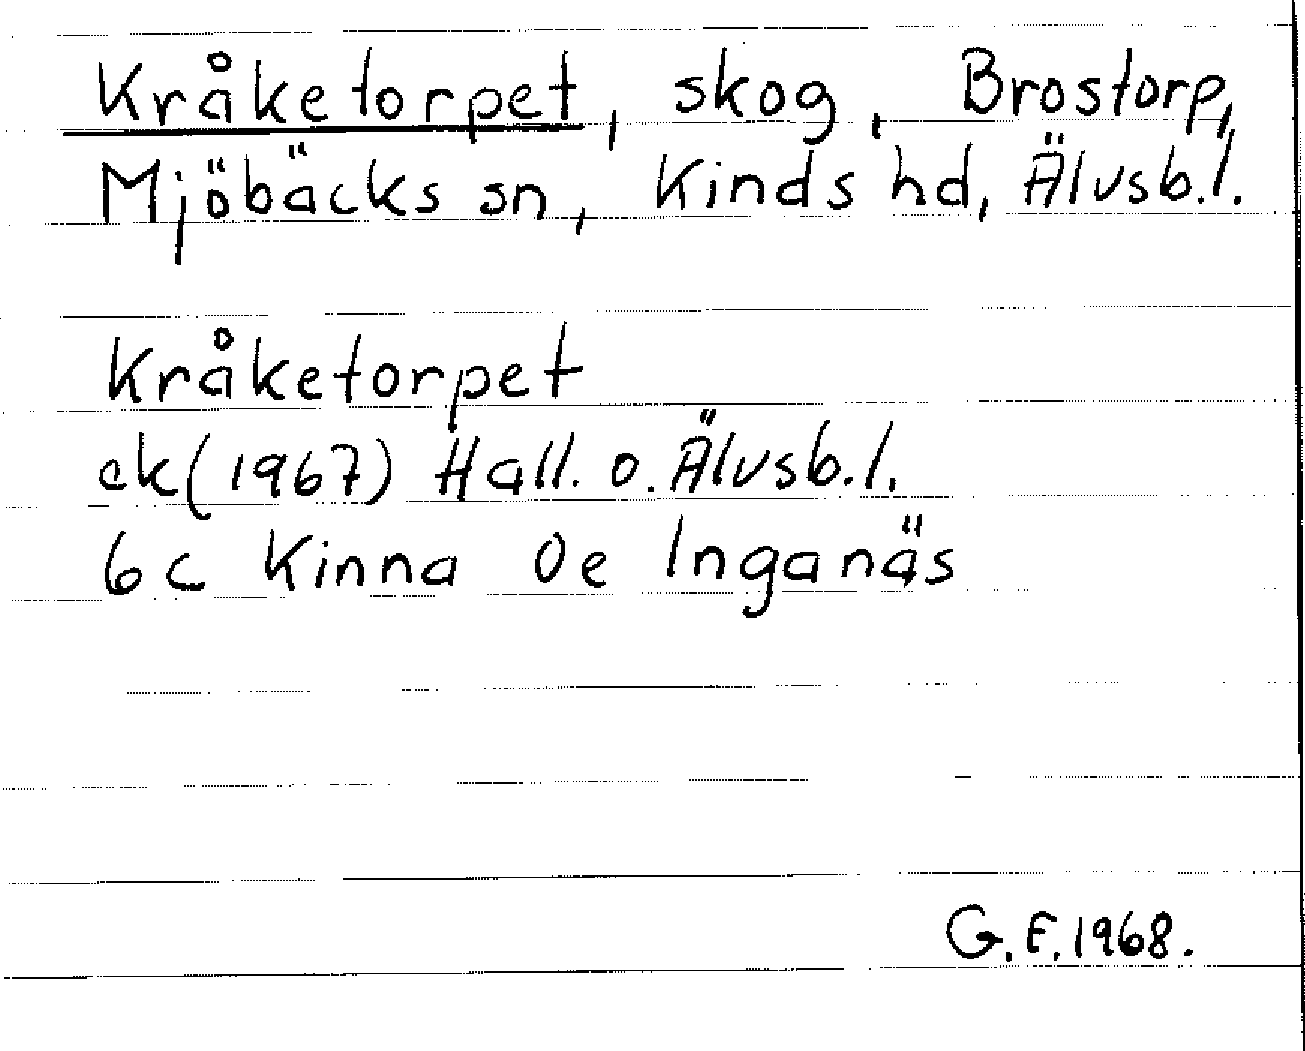 Kråketorpet, skog, Brostorp,
Mjöbäcks sn, Kinds hd, Älvsb.l.
Kråketorpet
ek (1967) Hall. o. Älvsb.l.
6 c Kinna 0e Inganäs
G.F. 1968.